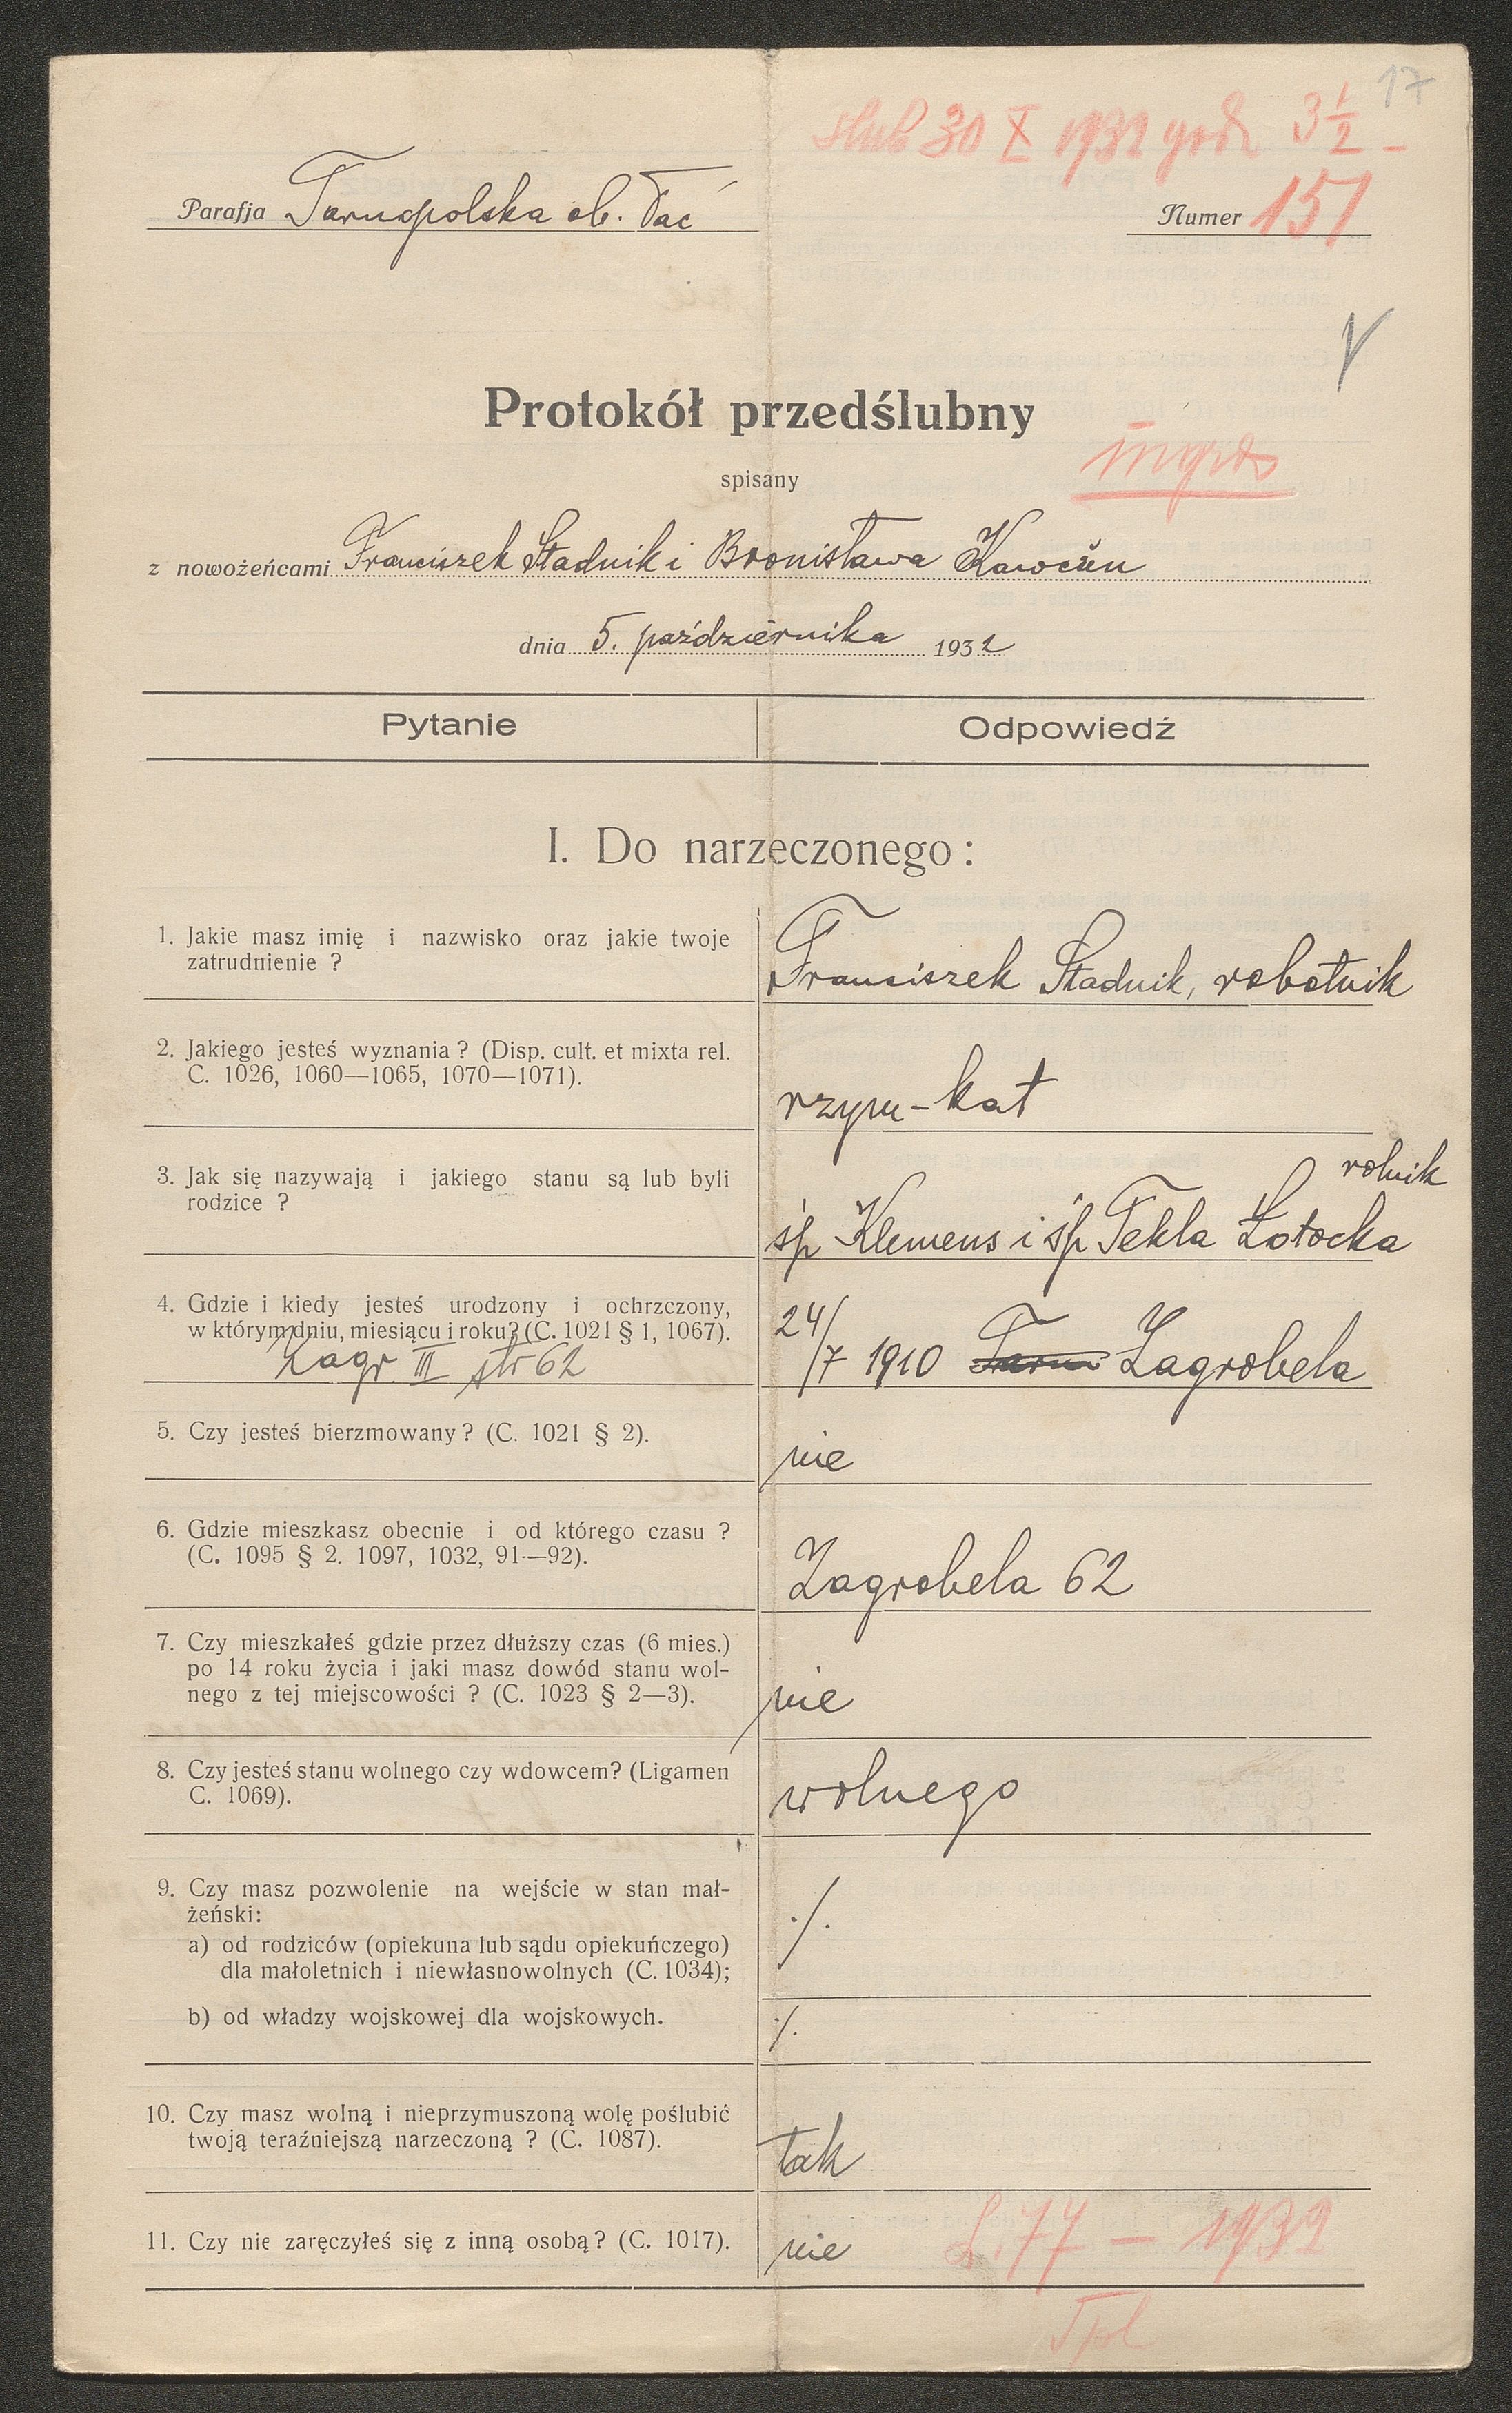 17
ślub 30 X 1932 godz 3 1/2 -
Parafja Tarnopolska ob. łac
Numer 151
Protokół przedślubny
spisany
z nowożeńcami Franciszek Stadnik i Bronisława
dnia 5. października 1932
Pytanie
Odpowiedź
I. Do narzeczonego:
1. Jakie masz imię i nazwisko oraz jakie twoje
zatrudnienie ?
Franciszek Stadnik, robotnik
2. Jakiego jesteś wyznania ? (Disp. cult. et mixta rel.
C. 1026, 1060—1065, 1070—1071).
rzym-kat
3. Jak się nazywają i jakiego stanu są lub byli
rodzice ?
rolnik
śp Klemens i śp Tekla Łotocka
4. Gdzie i kiedy jesteś urodzony i ochrzczony,
w którym dniu, miesiącu i roku? (C. 1021 § 1, 1067).
Zagr. III str 62
24/7 1910 Zagrobela
5. Czy jesteś bierzmowany ? (C. 1021 § 2).
nie
6. Gdzie mieszkasz obecnie i od którego czasu ?
(C. 1095 § 2. 1097, 1032, 91—92).
Zagrobela 62
7. Czy mieszkałeś gdzie przez dłuższy czas (6 mies.)
po 14 roku życia i jaki masz dowód stanu wol-
nego z tej miejscowości ? (C. 1023 § 2—3).
nie
8. Czy jesteś stanu wolnego czy wdowcem? (Ligamen
C. 1069).
wolnego
9. Czy masz pozwolenie na wejście w stan mał-
żeński:
a) od rodziców (opiekuna lub sądu opiekuńczego)
dla małoletnich i niewłasnowolnych (C. 1034);
./.
b) od władzy wojskowej dla wojskowych.
./.
10. Czy masz wolną i nieprzymuszoną wolę poślubić
twoją teraźniejszą narzeczoną ? (C. 1087).
tak
11. Czy nie zaręczyłeś się z inną osobą ? (C. 1017).
nie
L. 77 — 1932
Tpl